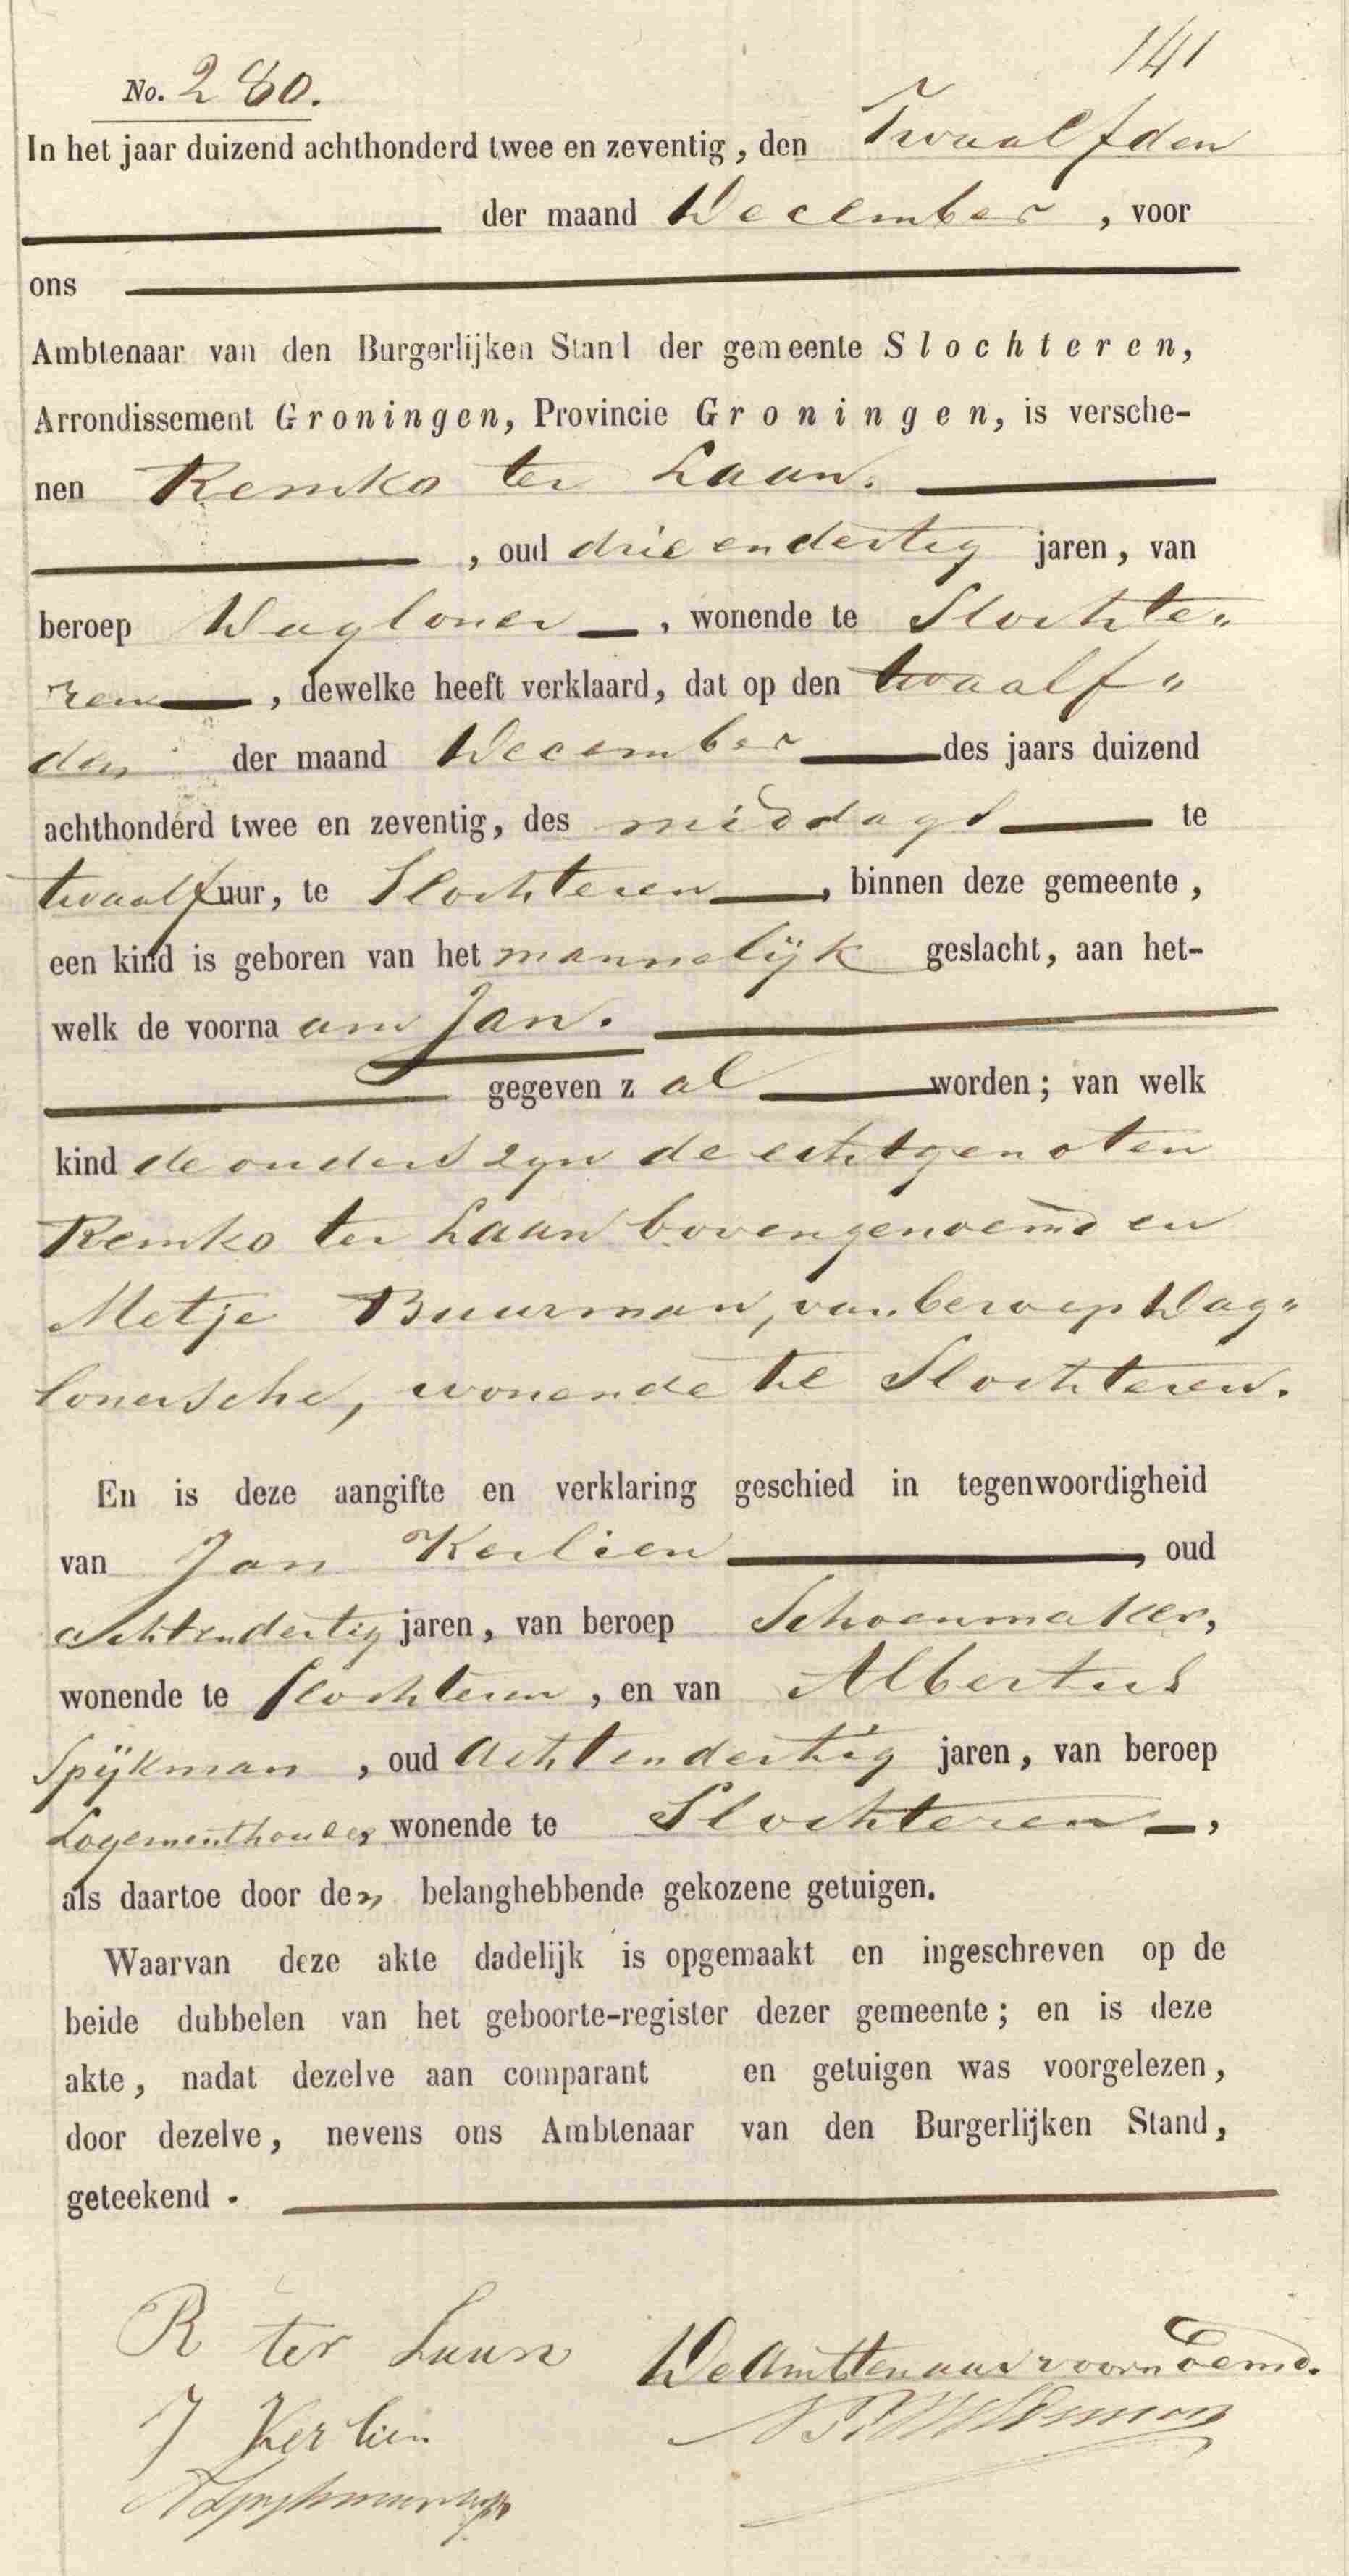 141
No. 280.
In het jaar duizend achthonderd twee en zeventig, den Twaalfden
der maand December, voor
ons
Ambtenaar van den Burgerlijken Stand der gemeente Slochteren,
Arrondissement Groningen, Provincie Groningen, is versche-
nen Remko ter Laan.
, oud drie en dertig jaren, van
beroep Dagloner, wonende te Slochte„
ren, dewelke heeft verklaard, dat op den twaalf„
den der maand December des jaars duizend
achthonderd twee en zeventig, des middags te
twaalf uur, te Slochteren, binnen deze gemeente,
een kind is geboren van het mannelijk geslacht, aan het-
welk de voorna am Jan.
gegeven z al worden; van welk
kind de ouders zyn de echtgenoten
Remko ter Laan bovengenoemd en
Metje Buurman, van beroep Dag„
lonersche, wonende te Slochteren.
En is deze aangifte en verklaring geschied in tegenwoordigheid
van Jan Kerlien, oud
achtendertig jaren, van beroep Schoenmaker,
wonende te Slochteren, en van Albertus
Spijkman, oud Achtendertig jaren, van beroep
Logementhouder, wonende te Slochteren,
als daartoe door den belanghebbende gekozene getuigen.
Waarvan deze akte dadelijk is opgemaakt en ingeschreven op de
beide dubbelen van het geboorte-register dezer gemeente; en is deze
akte, nadat dezelve aan comparant en getuigen was voorgelezen,
door dezelve, nevens ons Ambtenaar van den Burgerlijken Stand,
geteekend.
R ter Laan
De Ambtenaar voornoemd.
J Kerlien